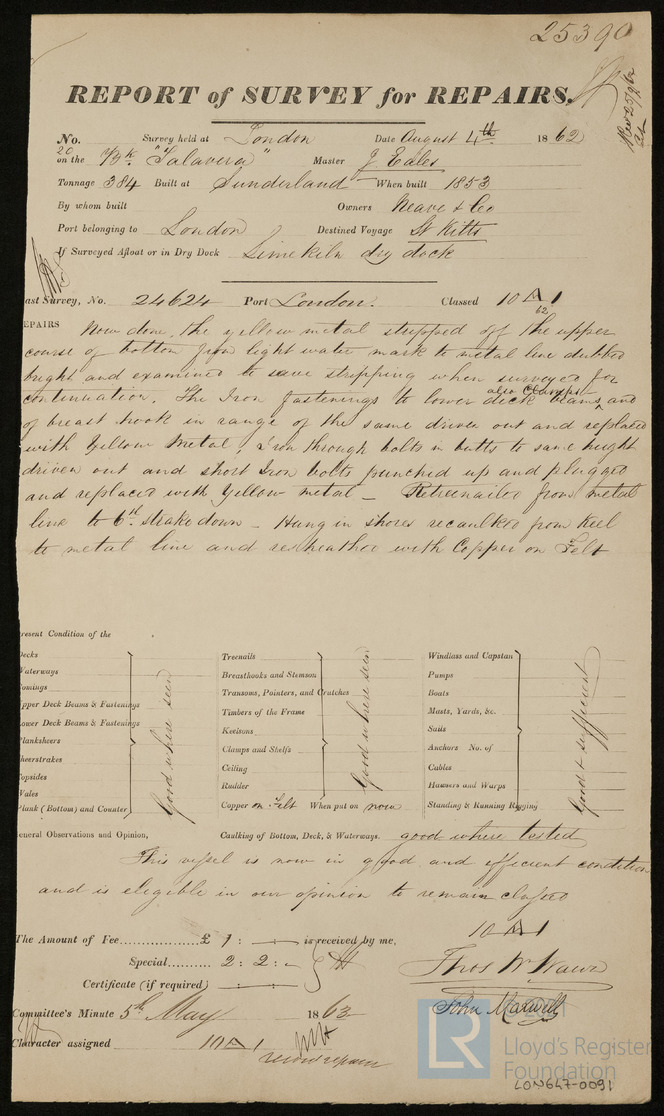 25390
REPORT of SURVEY for REPAIRS.
No. Survey held at London Date August 4th 1862
20 on the Bk "Talavera" Master J Eales
Tonnage 384 Built at Sunderland When built 1853
By whom built Owners Neave & Co
Port belonging to London Destined Voyage St Kitts
If Surveyed Afloat or in Dry Dock Limekiln dry dock
ast Survey, No. 24624 Port London. Classed 10 A 1
62
EPAIRS Now done, the yellow metal stripped off the upper
course of bottom from light water mark to metal line dubbed
bright and examined to save stripping when surveyed for
continuation. The Iron fastenings to lower deck beams also Clamps and
of breast hook in range of the same driven out and replaced
with Yellow Metal, Iron through bolts in butts to same height
driven out and short Iron bolts punched up and plugged
and replaced with Yellow metal – Retreenailed from metal
line to 6th strake down – Hung in shores recaulked from Keel
to metal line and resheathed with Copper on Felt
resent Condition of the
Decks
Waterways
omings
pper Deck Beams & Fastenings
ower Deck Beams & Fastenings
lanksheers
heerstrakes
opsides
Wales
lank (Bottom) and Counter
Good where seen
Treenails
Breasthooks and Stemson
Transoms, Pointers, and Crutches
Timbers of the Frame
Keelsons
Clamps and Shelfs
Ceiling
Rudder
Copper on Felt When put on now
Good where seen
Windlass and Capstan
Pumps
Boats
Masts, Yards, &c.
Sails
Anchors No. of
Cables
Hawsers and Warps
Standing & Running Rigging
Good & sufficient
eneral Observations and Opinion, Caulking of Bottom, Deck, & Waterways. good where tested
This vessel is now in good and efficient condition
and is eligible in our opinion to remain classed
10 A 1
The Amount of Fee..................£ 1 : – : – is received by me,
Special......... 2 : 2 : –
Certificate (if required) : :
Thos W Wawn
John Maxwell
Committee's Minute 5th May 1863
Character assigned 10 A 1
© 2021
LR
Lloyd's Register
Foundation
LON647-0091